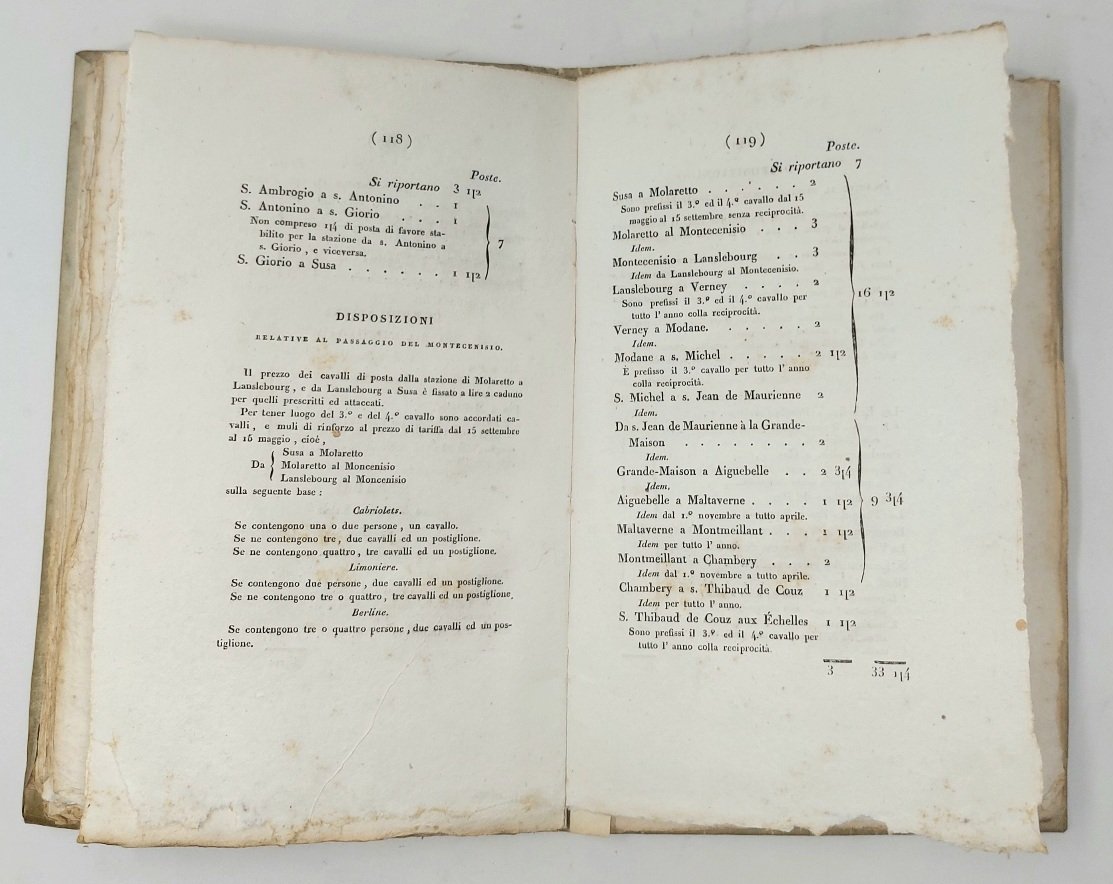 (118)
Poste.
Si riportano 3 1|2
S. Ambrogio a s. Antonino . . 1
S. Antonino a s. Giorio . . . 1
Non compreso 1|4 di posta di favore sta-
bilito per la stazione da s. Antonino a
s. Giorio , e viceversa.
7
S. Giorio a Susa . . . . . . 1 1|2
DISPOSIZIONI
RELATIVE AL PASSAGGIO DEL MONTECENISIO.
Il prezzo dei cavalli di posta dalla stazione di Molaretto a
Lanslebourg , e da Lanslebourg a Susa è fissato a lire 2 caduno
per quelli prescritti ed attaccati.
Per tener luogo del 3.º e del 4.º cavallo sono accordati ca-
valli , e muli di rinforzo al prezzo di tariffa dal 15 settembre
al 15 maggio , cioè ,
Susa a Molaretto
Da { Molaretto al Moncenisio
Lanslebourg al Moncenisio
sulla seguente base :
Cabriolets.
Se contengono una o due persone , un cavallo.
Se ne contengono tre, due cavalli ed un postiglione.
Se ne contengono quattro, tre cavalli ed un postiglione.
Limoniere.
Se contengono due persone , due cavalli ed un postiglione.
Se ne contengono tre o quattro, tre cavalli ed un postiglione.
Berline.
Se contengono tre o quattro persone , due cavalli ed un pos-
tiglione.
(119)
Poste.
Si riportano 7
Susa a Molaretto . . . . . . 2
Sono prefissi il 3.º ed il 4.º cavallo dal 15
maggio al 15 settembre senza reciprocità.
Molaretto al Montecenisio . . . 3
Idem.
Montecenisio a Lanslebourg . . 3
Idem da Lanslebourg al Montecenisio.
Lanslebourg a Verney . . . . 2
16 1|2
Sono prefissi il 3.º ed il 4.º cavallo per
tutto l' anno colla reciprocità.
Verney a Modane. . . . . . 2
Idem.
Modane a s. Michel . . . . . 2 1|2
È prefisso il 3.º cavallo per tutto l' anno
colla reciprocità.
S. Michel a s. Jean de Maurienne 2
Idem.
Da s. Jean de Maurienne à la Grande-
Maison . . . . . . . . 2
Idem.
Grande-Maison a Aiguebelle . . 2 3|4
Idem.
Aiguebelle a Maltaverne . . . . 1 1|2
9 3|4
Idem dal 1.º novembre a tutto aprile.
Maltaverne a Montmeillant . . . 1 1|2
Idem per tutto l' anno.
Montmeillant a Chambery . . . 2
Idem dal 1.º novembre a tutto aprile.
Chambery a s. Thibaud de Couz 1 1|2
Idem per tutto l' anno.
S. Thibaud de Couz aux Échelles 1 1|2
Sono prefissi il 3.º ed il 4.º cavallo per
tutto l' anno colla reciprocità.
3 33 1|4